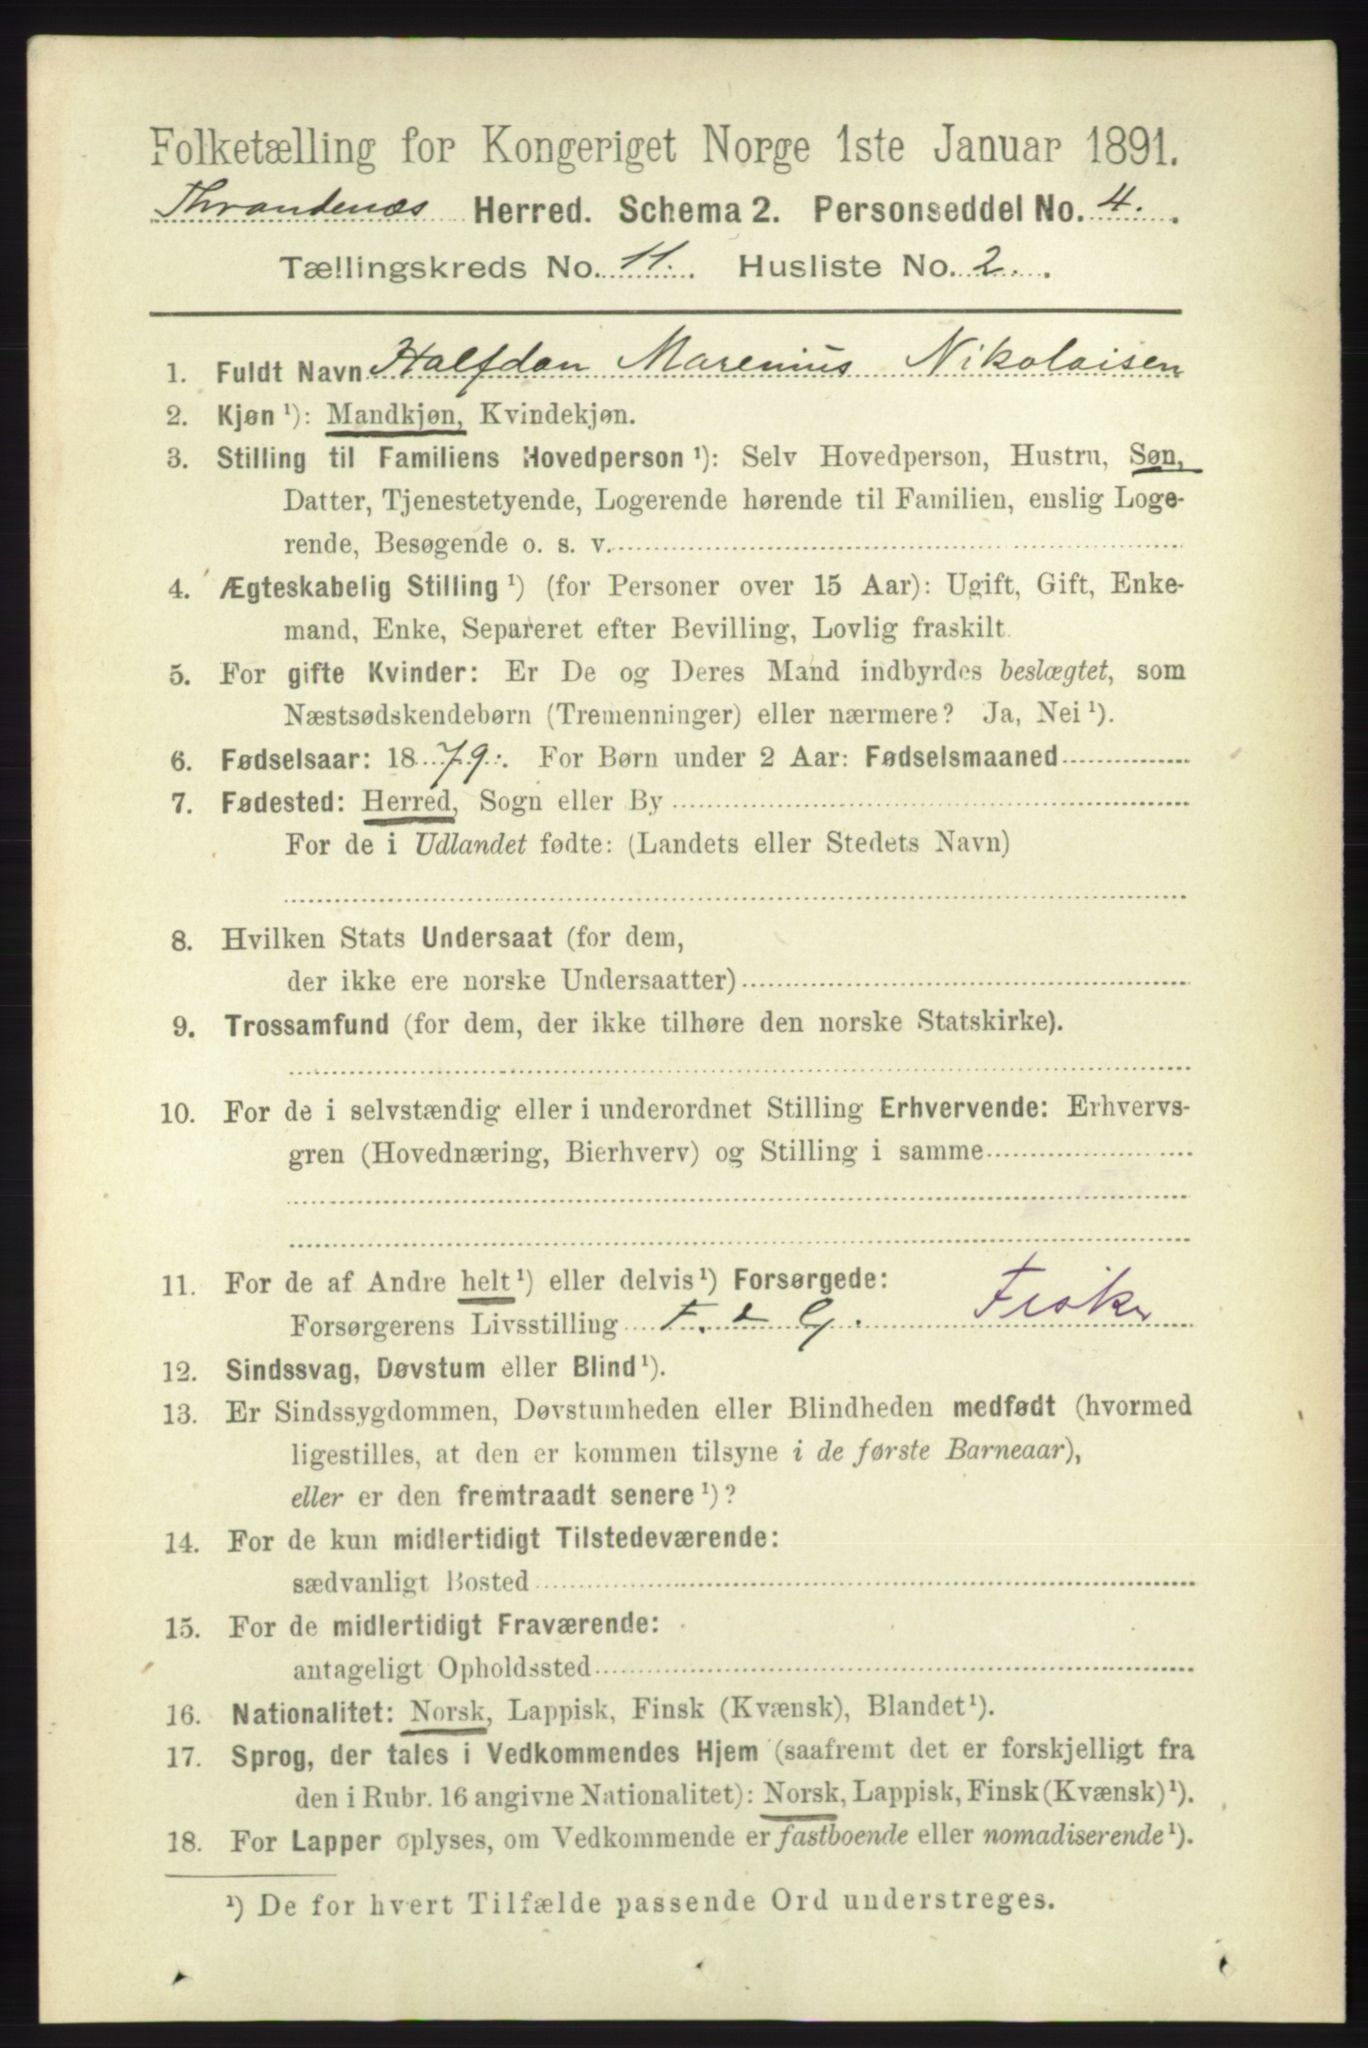 Folketælling for Kongeriget Norge 1ste Januar 1891.
Throndenæs Herred. Schema 2. Personseddel No. 4.
Tællingskreds No. 11. Husliste No. 2.
1. Fuldt Navn Halfdan Marenius Nikolaisen
2. Kjøn ¹): Mandkjøn, Kvindekjøn.
3. Stilling til Familiens Hovedperson ¹): Selv Hovedperson, Hustru, Søn,
Datter, Tjenestetyende, Logerende hørende til Familien, enslig Loge-
rende, Besøgende o. s. v.
4. Ægteskabelig Stilling ¹) (for Personer over 15 Aar): Ugift, Gift, Enke-
mand, Enke, Separeret efter Bevilling, Lovlig fraskilt.
5. For gifte Kvinder: Er De og Deres Mand indbyrdes beslægtet, som
Næstsødskendebørn (Tremenninger) eller nærmere? Ja, Nei ¹).
6. Fødselsaar: 1879. For Børn under 2 Aar: Fødselsmaaned
7. Fødested: Herred, Sogn eller By
For de i Udlandet fødte: (Landets eller Stedets Navn)
8. Hvilken Stats Undersaat (for dem,
der ikke ere norske Undersaatter)
9. Trossamfund (for dem, der ikke tilhøre den norske Statskirke).
10. For de i selvstændig eller i underordnet Stilling Erhvervende: Erhvervs-
gren (Hovednæring, Bierhverv) og Stilling i samme
11. For de af Andre helt ¹) eller delvis ¹) Forsørgede:
Forsørgerens Livsstilling F. & G. Fisker
12. Sindssvag, Døvstum eller Blind ¹).
13. Er Sindssygdommen, Døvstumheden eller Blindheden medfødt (hvormed
ligestilles, at den er kommen tilsyne i de første Barneaar),
eller er den fremtraadt senere ¹)?
14. For de kun midlertidigt Tilstedeværende:
sædvanligt Bosted
15. For de midlertidigt Fraværende:
antageligt Opholdssted
16. Nationalitet: Norsk, Lappisk, Finsk (Kvænsk), Blandet ¹).
17. Sprog, der tales i Vedkommendes Hjem (saafremt det er forskjelligt fra
den i Rubr. 16 angivne Nationalitet): Norsk, Lappisk, Finsk (Kvænsk) ¹).
18. For Lapper oplyses, om Vedkommende er fastboende eller nomadiserende ¹).
¹) De for hvert Tilfælde passende Ord understreges.